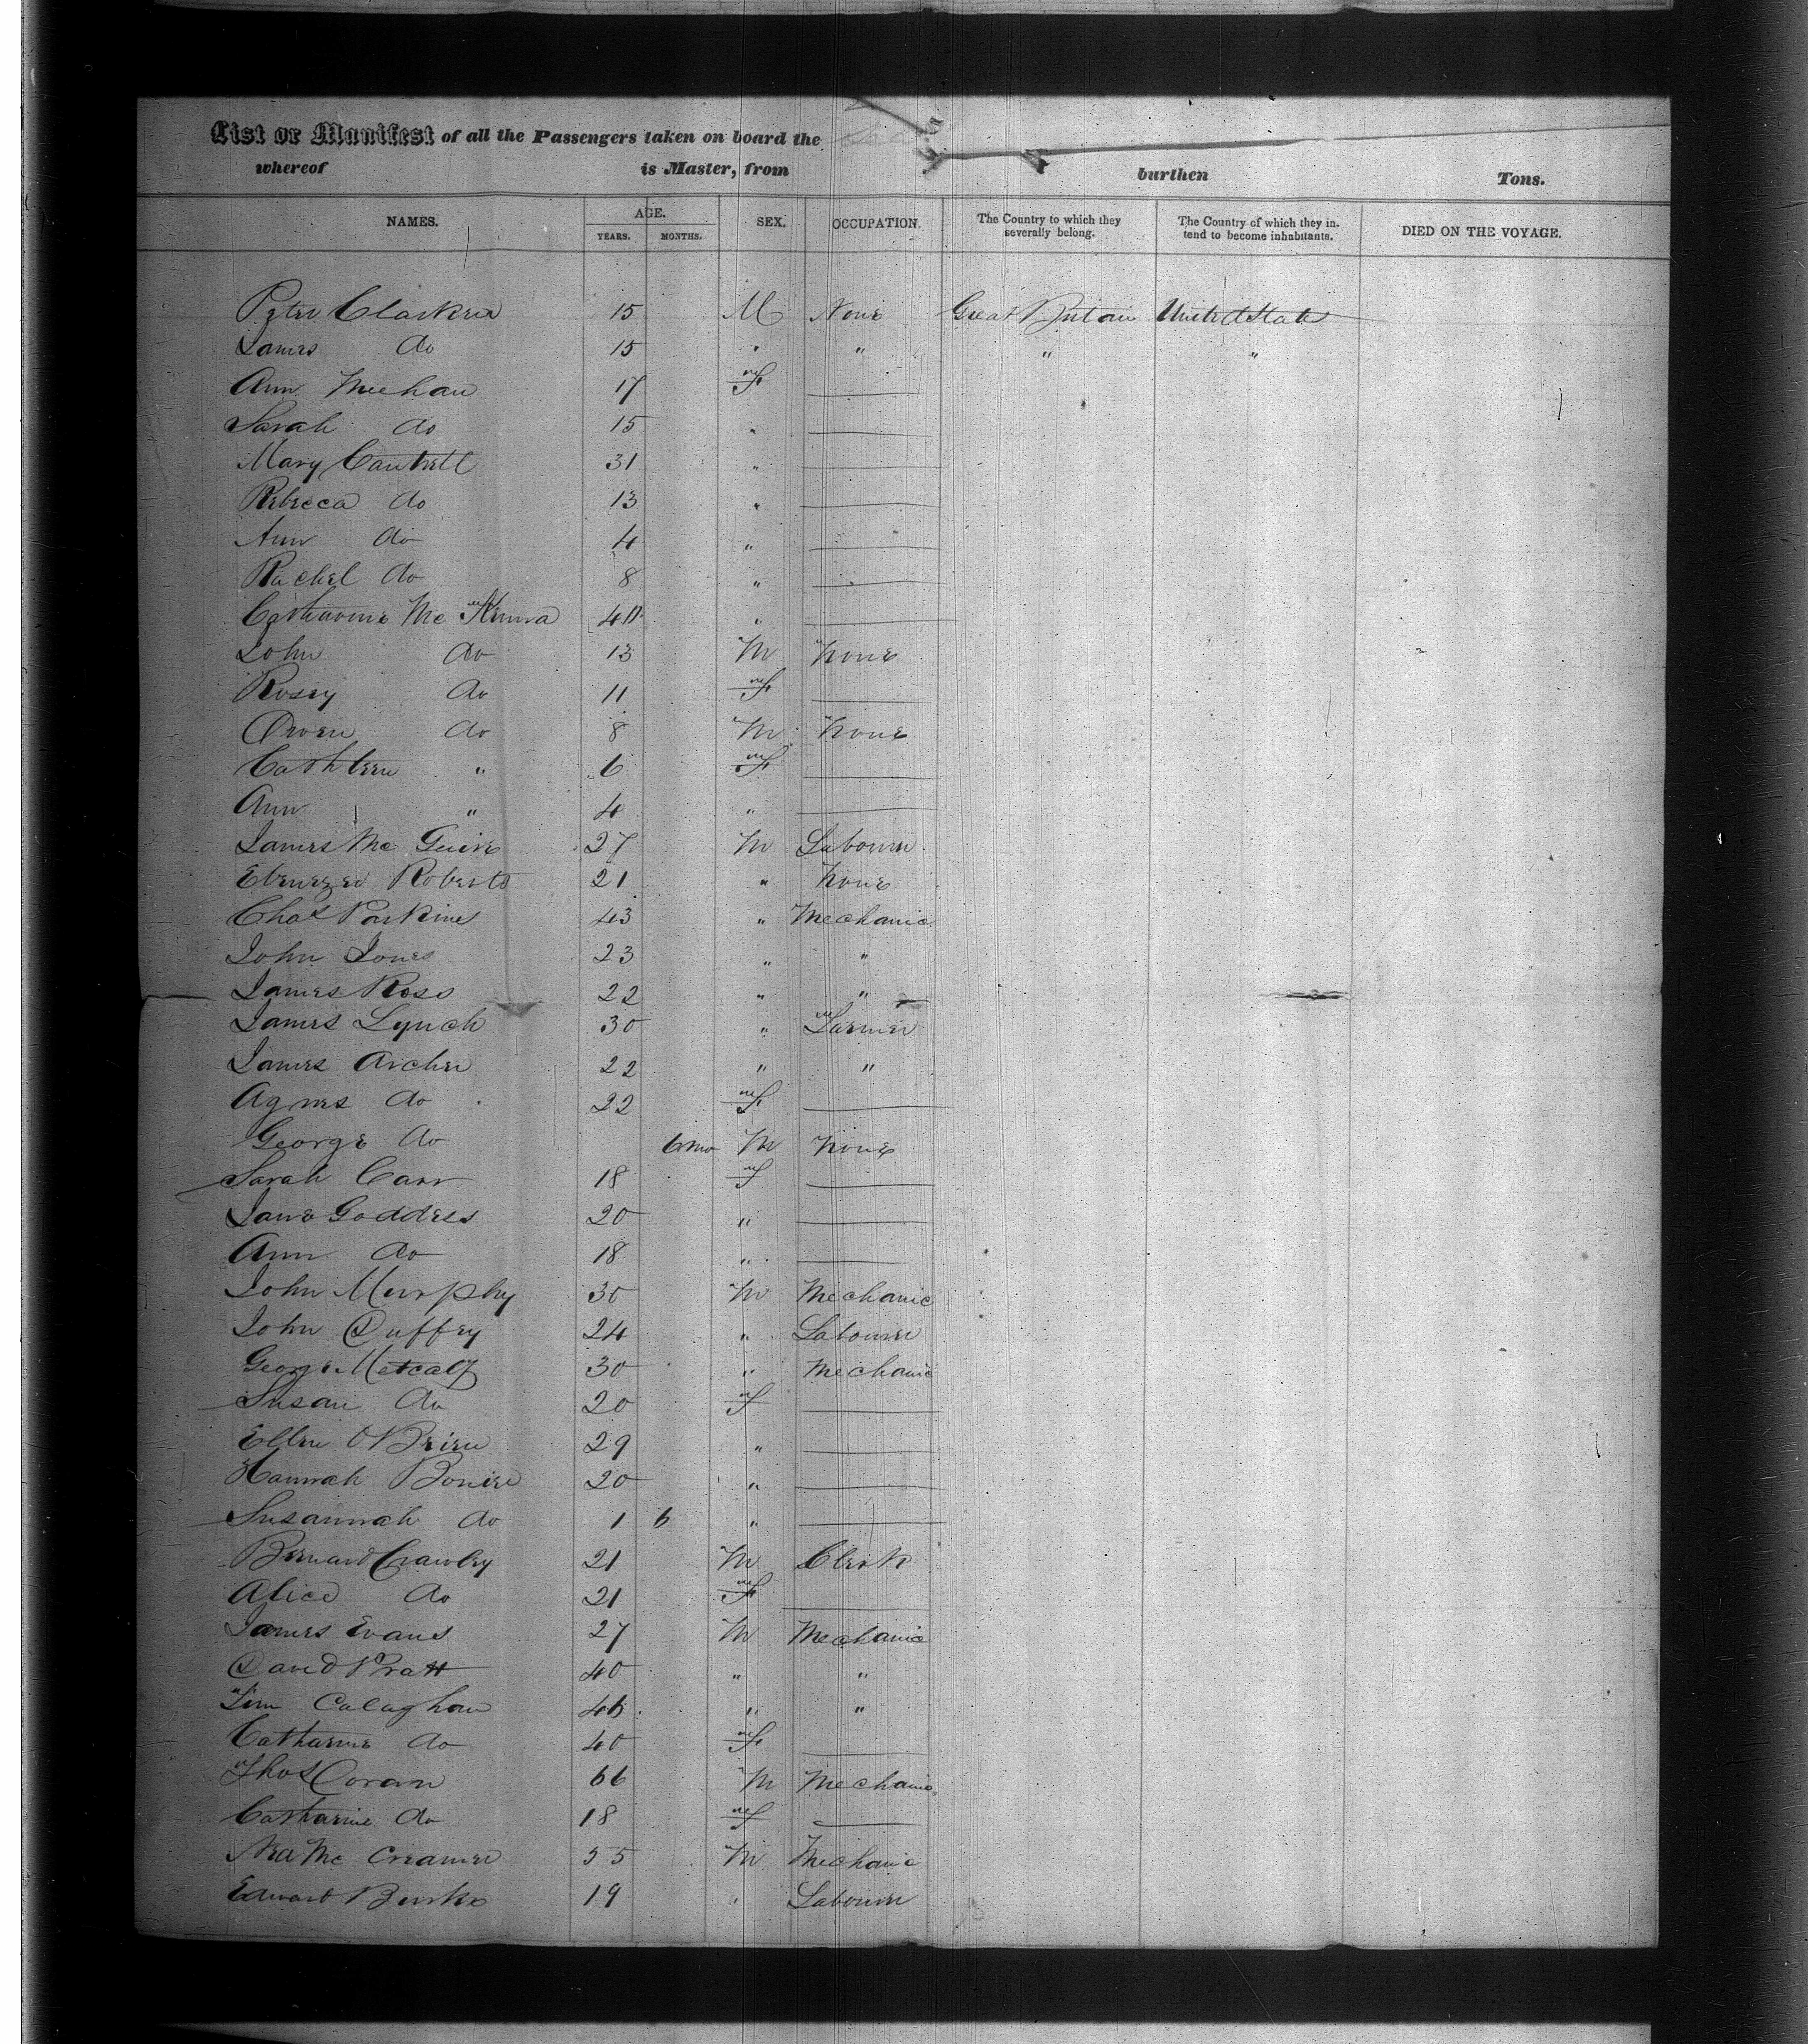 List or Manifest of all the Passengers taken on board the
whereof is Master, from burthen Tons.
NAMES. AGE. SEX. OCCUPATION. The Country to which they severally belong. The Country of which they intend to become inhabitants. DIED ON THE VOYAGE.
YEARS. MONTHS.
Peter 15 M None Great Britain United States
James do 15 " " " "
Ann Meehan 17 F
Sarah do 15 "
Mary Cantrell 31 "
Rebecca do 13 "
Ann do 4 "
Rachel do 8 "
Catharine Mc Kenna 40 "
John do 13 M None
Rosey do 11 F
Owen do 8 M None
Cathleen " 6 F
Ann " 4 "
James Mc Guire 27 M Labourer
Ebenezer Roberts 21 " None
Chas Parkins 43 " Mechanic
John Jones 23 " "
James Ross 22 " "
James Lynch 30 " Farmer
James Archer 22 " "
Agnes do 22 F
George do 6 mo M None
Sarah Carr 18 F
Jane Goddess 20 "
Ann do 18 "
John Murphy 30 M Mechanic
John Duffey 24 " Labourer
George Metcalf 30 " Mechanic
Susan do 20 F
Ellen OBrien 29 "
Hannah 20 "
Susannah do 1 6 "
Bernard Crawley 21 M Clerk
Alice do 21 F
James Evans 27 M Mechanic
David Pratt 40 " "
Tim Calaghan " "
Catharine do 40 F
Thos Coran 66 M Mechanic
Catharine do 18 F
Mc Creamer 55 M Mechanic
Edward Burke 19 " Labourer